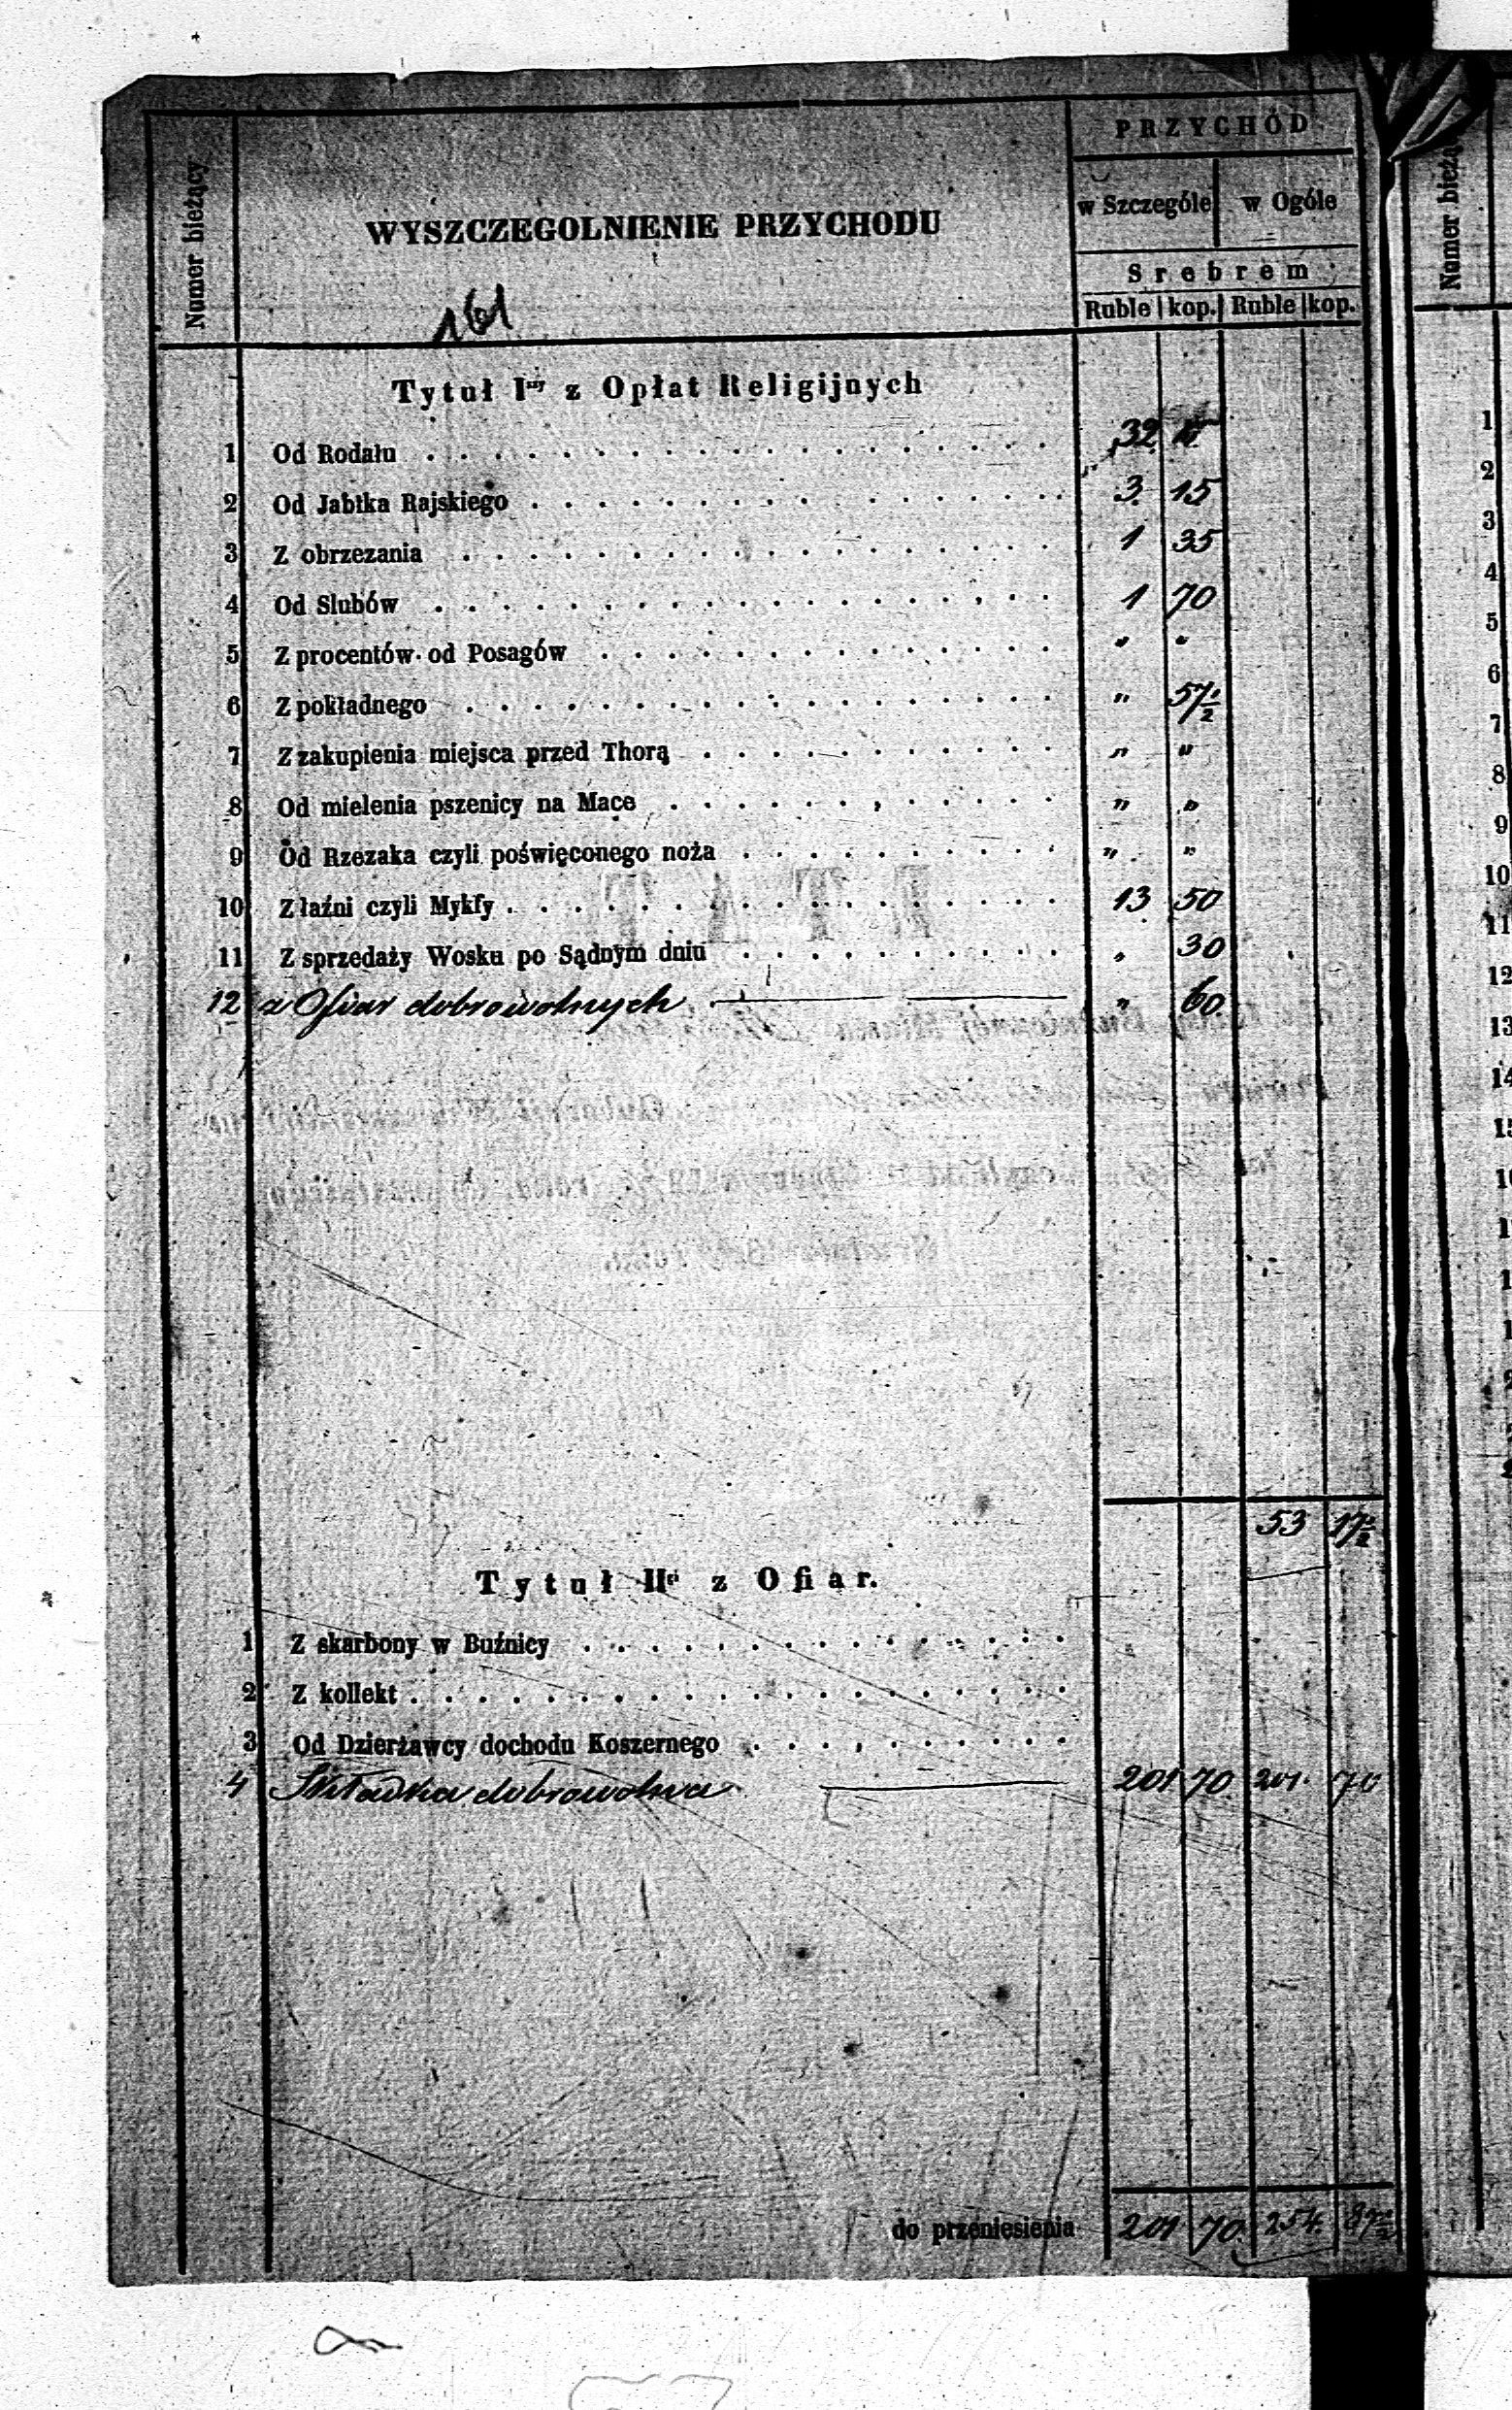 PRZYCHÓD
Numer bieżący
WYSZCZEGOLNIENIE PRZYCHODU
w Szczególe w Ogóle
Srebrem
Ruble kop. Ruble kop.
161
Tytuł Iszy z Opłat Religijnych
1 Od Rodału . . . . . . . . . . . . . . . . . . . 32
2 Od Jabłka Rajskiego . . . . . . . . . . . . . . . . 3 15
3 Z obrzezania . . . . . . . . . . . . . . . . . . 1 35
4 Od Slubów . . . . . . . . . . . . . . . . . . . 1 70
5 Z procentów od Posagów . . . . . . . . . . . . . . " "
6 Z pokładnego . . . . . . . . . . . . . . . . . . " 57½
7 Z zakupienia miejsca przed Thorą . . . . . . . . . . . " "
8 Od mielenia pszenicy na Mace . . . . . . . . . . . . " "
9 Od Rzezaka czyli poświęconego noża . . . . . . . . . . " "
10 Z łaźni czyli Mykfy . . . . . . . . . . . . . . . . . 13 50
11 Z sprzedaży Wosku po Sądnym dniu . . . . . . . . . . " 30
12 z Ofiar dobrowolnych " 60
53 17½
Tytuł IIgi z Ofiar.
1 Z skarbony w Buźnicy . . . . . . . . . . . . . . .
2 Z kollekt . . . . . . . . . . . . . . . . . . . .
3 Od Dzierżawcy dochodu Koszernego . . . . . . . . . .
4 Składka dobrowolna 201 70 201 70
do przeniesienia 201 70 254 87½
Numer bieżą
1
2
3
4
5
6
7
8
9
10
11
12
13
14